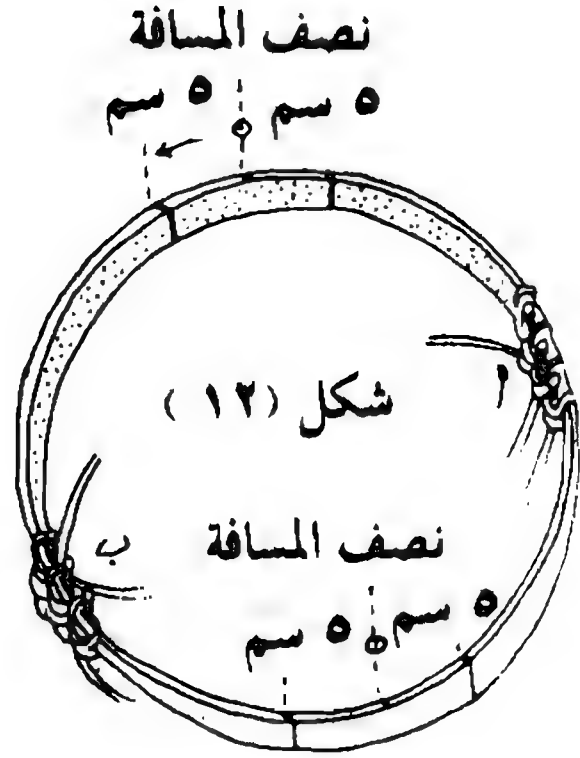 نصف المسافة
٥ سم ٥ سم
أ
شكل (١٣)
ب
نصف المسافة
٥ سم ٥ سم